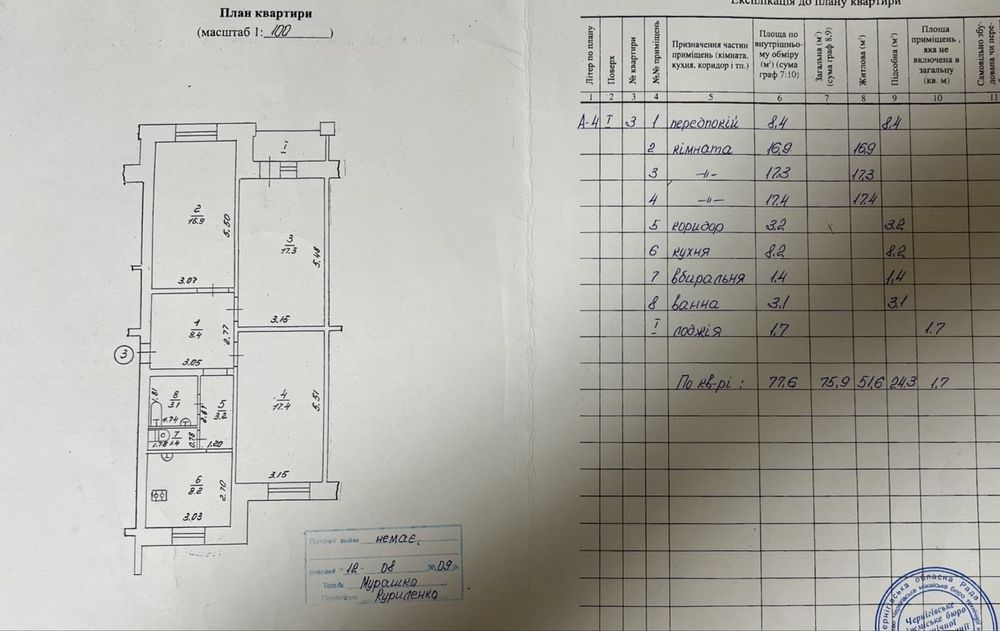 План квартири
(масштаб 1: 100 )
I
2
16.9
5.50
3.07
3
17.3
5.48
3.16
1
8.4
2.77
3.05
3
8
3.1
1.81
1.74
5
3.2
2.67
1.20
7
1.4
1.78
0.78
4
17.4
5.51
3.15
6
8.2
2.70
3.03
Поточні зміни немає.
внесені "12" 08 09
Мурашко
Перевірив Куриленко
Експлікація до плану квартири
Літер по плану
Поверх
№ квартири
№№ приміщень
Призначення частин приміщень (кімната, кухня, коридор і тп.)
Площа по внутрішньо-му обміру (м²) (сума граф 7:10)
Загальна (м²) (сума граф 8,9)
Житлова (м²)
Підсобна (м²)
Площа приміщень, яка не включена в загальну (кв. м)
Самовільно збу-дована чи пере-
1 2 3 4 5 6 7 8 9 10 11
А-4 I 3 1 передпокій 8,4 8,4
2 кімната 16,9 16,9
3 -"- 17.3 17.3
4 -"- 17.4 17.4
5 коридор 3.2 3.2
6 кухня 8,2 8,2
7 вбиральня 1.4 1,4
8 ванна 3,1 3,1
I лоджія 1.7 1.7
По кв-рі : 77.6 75,9 51,6 24.3 1.7
Чернігівська обласна Рада
Чернігівське
міжміське бюро